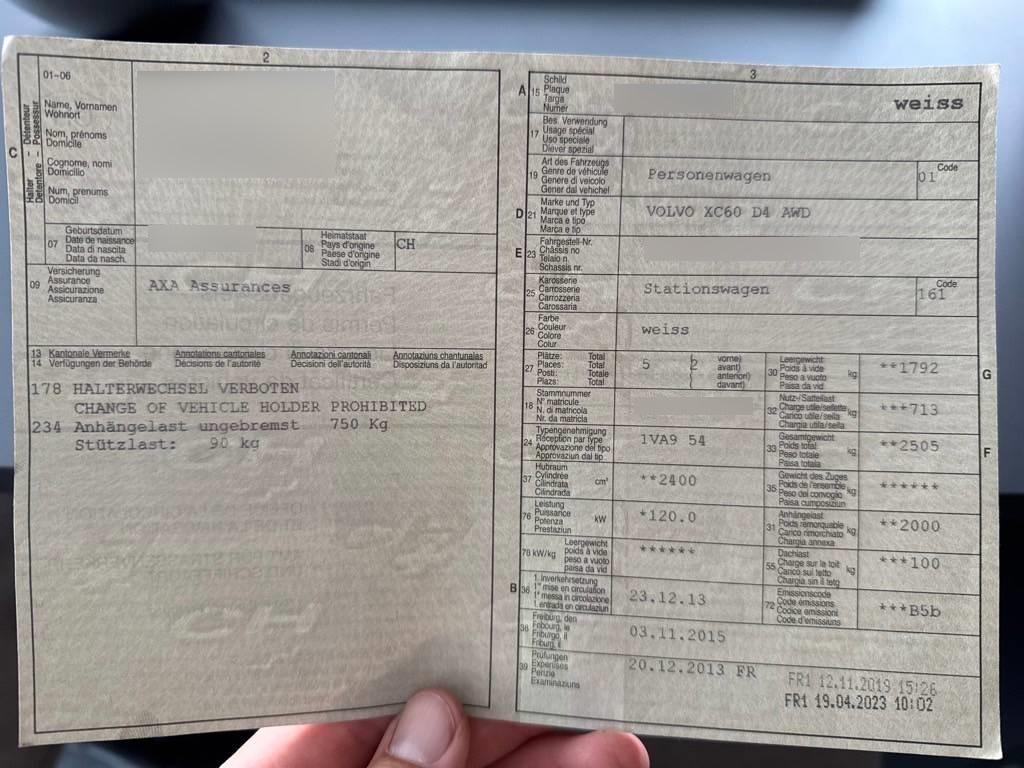 2
01-06
Name, Vornamen
Wohnort
Nom, prénoms
Domicile
Cognome, nomi
Domicilio
Num, prenums
Domicil
C
Halter – Détenteur
Detentore – Possessur
07
Geburtsdatum
Date de naissance
Data di nascita
Data da nasch.
08
Heimatstaat
Pays d'origine
Paese d'origine
Stadi d'origin
CH
09
Versicherung
Assurance
Assicurazione
Assicuranza
AXA Assurances
13 Kantonale Vermerke Annotations cantonales Annotazioni cantonali Annotaziuns chantunalas
14 Verfügungen der Behörde Décisions de l'autorité Decisioni dell'autorità Disposiziuns da l'autoritad
178 HALTERWECHSEL VERBOTEN
CHANGE OF VEHICLE HOLDER PROHIBITED
234 Anhängelast ungebremst 750 Kg
Stützlast: 90 kg
3
A 15
Schild
Plaque
Targa
Numer
weiss
17
Bes. Verwendung
Usage spécial
Uso speciale
Diever spezial
19
Art des Fahrzeugs
Genre de véhicule
Genere di veicolo
Gener dal vehichel
Personenwagen
Code
01
D 21
Marke und Typ
Marque et type
Marca e tipo
Marca e tip
VOLVO XC60 D4 AWD
E 23
Fahrgestell-Nr.
Châssis no
Telaio n.
Schassis nr.
25
Karosserie
Carrosserie
Carrozzeria
Carossaria
Stationswagen
Code
161
26
Farbe
Couleur
Colore
Colur
weiss
27
Plätze: Total
Places: Total
Posti: Totale
Plazs: Total
5 (2
vorne)
avant)
anteriori)
davant)
30
Leergewicht
Poids à vide
Peso a vuoto
Paisa da vid
kg
**1792
G
18
Stammnummer
N° matricule
N. di matricola
Nr. da matricla
32
Nutz-/Sattellast
Charge utile/sellette
Carico utile/sella
Chargia utila/sella
kg
***713
24
Typengenehmigung
Réception par type
Approvazione del tipo
Approvaziun dal tip
1VA9 54
33
Gesamtgewicht
Poids total
Peso totale
Paisa totala
kg
**2505
F
37
Hubraum
Cylindrée
Cilindrata
Cilindrada
cm³
**2400
35
Gewicht des Zuges
Poids de l'ensemble
Peso del convoglio
Paisa cumposiziun
kg
******
76
Leistung
Puissance
Potenza
Prestaziun
kW
*120.0
31
Anhängelast
Poids remorquable
Carico rimorchiato
Chargia annexa
kg
**2000
78 kW/kg
Leergewicht
poids à vide
peso a vuoto
paisa da vid
******
55
Dachlast
Charge sur le toit
Carico sul tetto
Chargia sin il tetg
kg
***100
B 36
1. Inverkehrsetzung
1re mise en circulation
1a messa in circolazione
1. entrada en circulaziun
23.12.13
72
Emissionscode
Code émissions
Codice emissioni
Code d'emissiuns
***B5b
38
Freiburg, den
Fribourg, le
Friburgo, il
Friburg, il
03.11.2015
39
Prüfungen
Expertises
Perizie
Examinaziuns
20.12.2013 FR
FR1 12.11.2019 15:26
FR1 19.04.2023 10:02